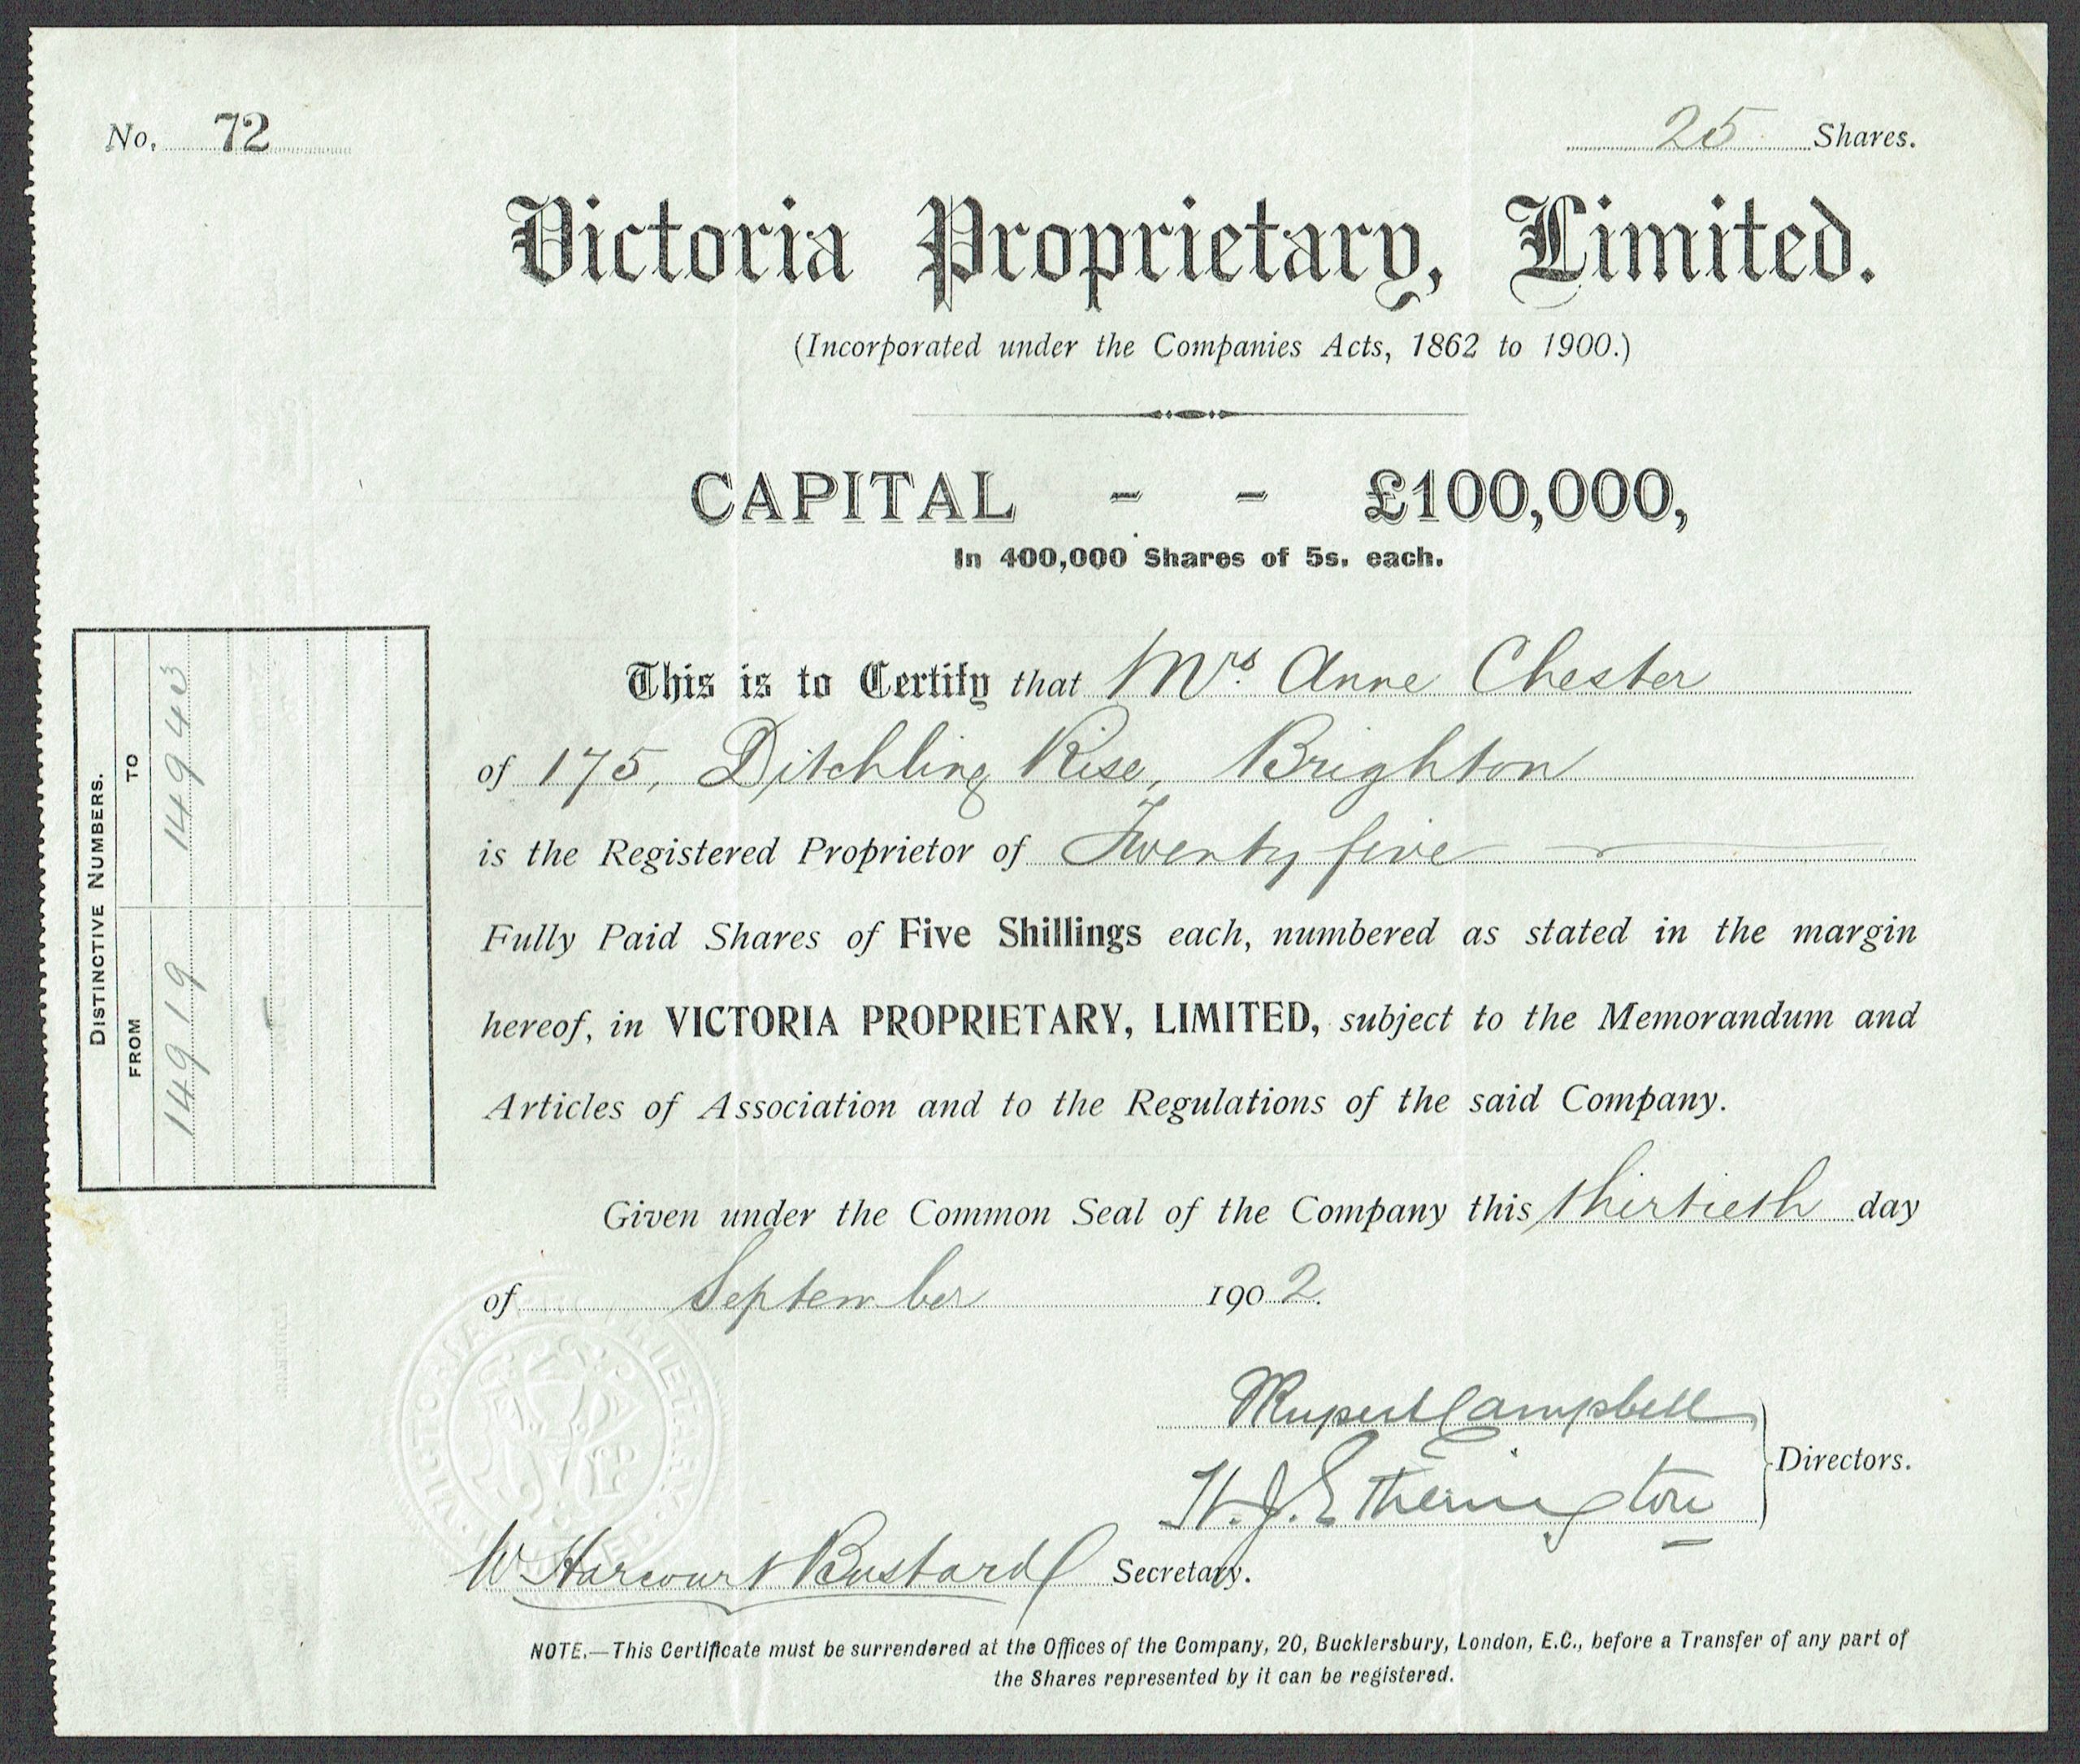 No. 72
25 Shares.
Victoria Proprietary, Limited.
(Incorporated under the Companies Acts, 1862 to 1900.)
CAPITAL - - £100,000,
In 400,000 Shares of 5s. each.
DISTINCTIVE NUMBERS.
FROM TO
14919 14943
This is to Certify that Mrs. Anne Chester
of 175, Ditchling Rise, Brighton
is the Registered Proprietor of Twenty five
Fully Paid Shares of Five Shillings each, numbered as stated in the margin
hereof, in VICTORIA PROPRIETARY, LIMITED, subject to the Memorandum and
Articles of Association and to the Regulations of the said Company.
Given under the Common Seal of the Company this thirtieth day
of September 1902.
Rupert Campbell
H. J. Etherington
Directors.
W Harcourt Bustard Secretary.
NOTE.—This Certificate must be surrendered at the Offices of the Company, 20, Bucklersbury, London, E.C., before a Transfer of any part of
the Shares represented by it can be registered.
VICTORIA PROPRIETARY